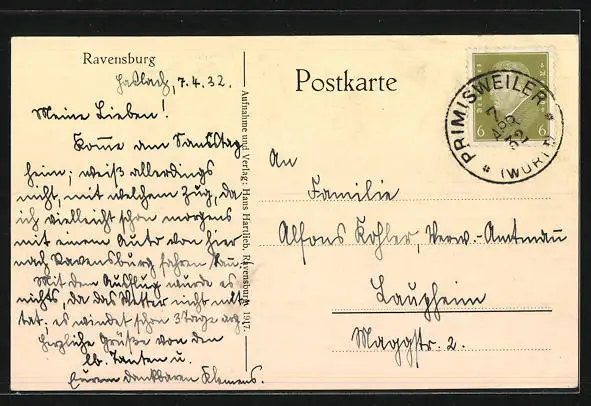 Ravensburg
Hatlach, 7.4.32.
Meine Lieben!
Komme am Samstag
heim; weiß allerdings
nicht, mit welchem Zug, da
ich vielleicht schon morgens
mit einem Auto von hier
nach Ravensburg fahren kann.
Mit dem Ausflug wurde es
nichts, da das Wetter nicht mit
tat; es windet schon 3 Tage arg.
Herzliche Grüße von den
lb. Tanten u.
Eurem dankbaren Klemens.
Aufnahme und Verlag: Hans Hartlieb, Ravensburg 1917.
Postkarte
6 6
PRIMISWEILER
7
APR
32
(WÜRT)
An
Familie
Alfons Kohler, Verw.-Amtmann
Laupheim
Maggstr. 2.